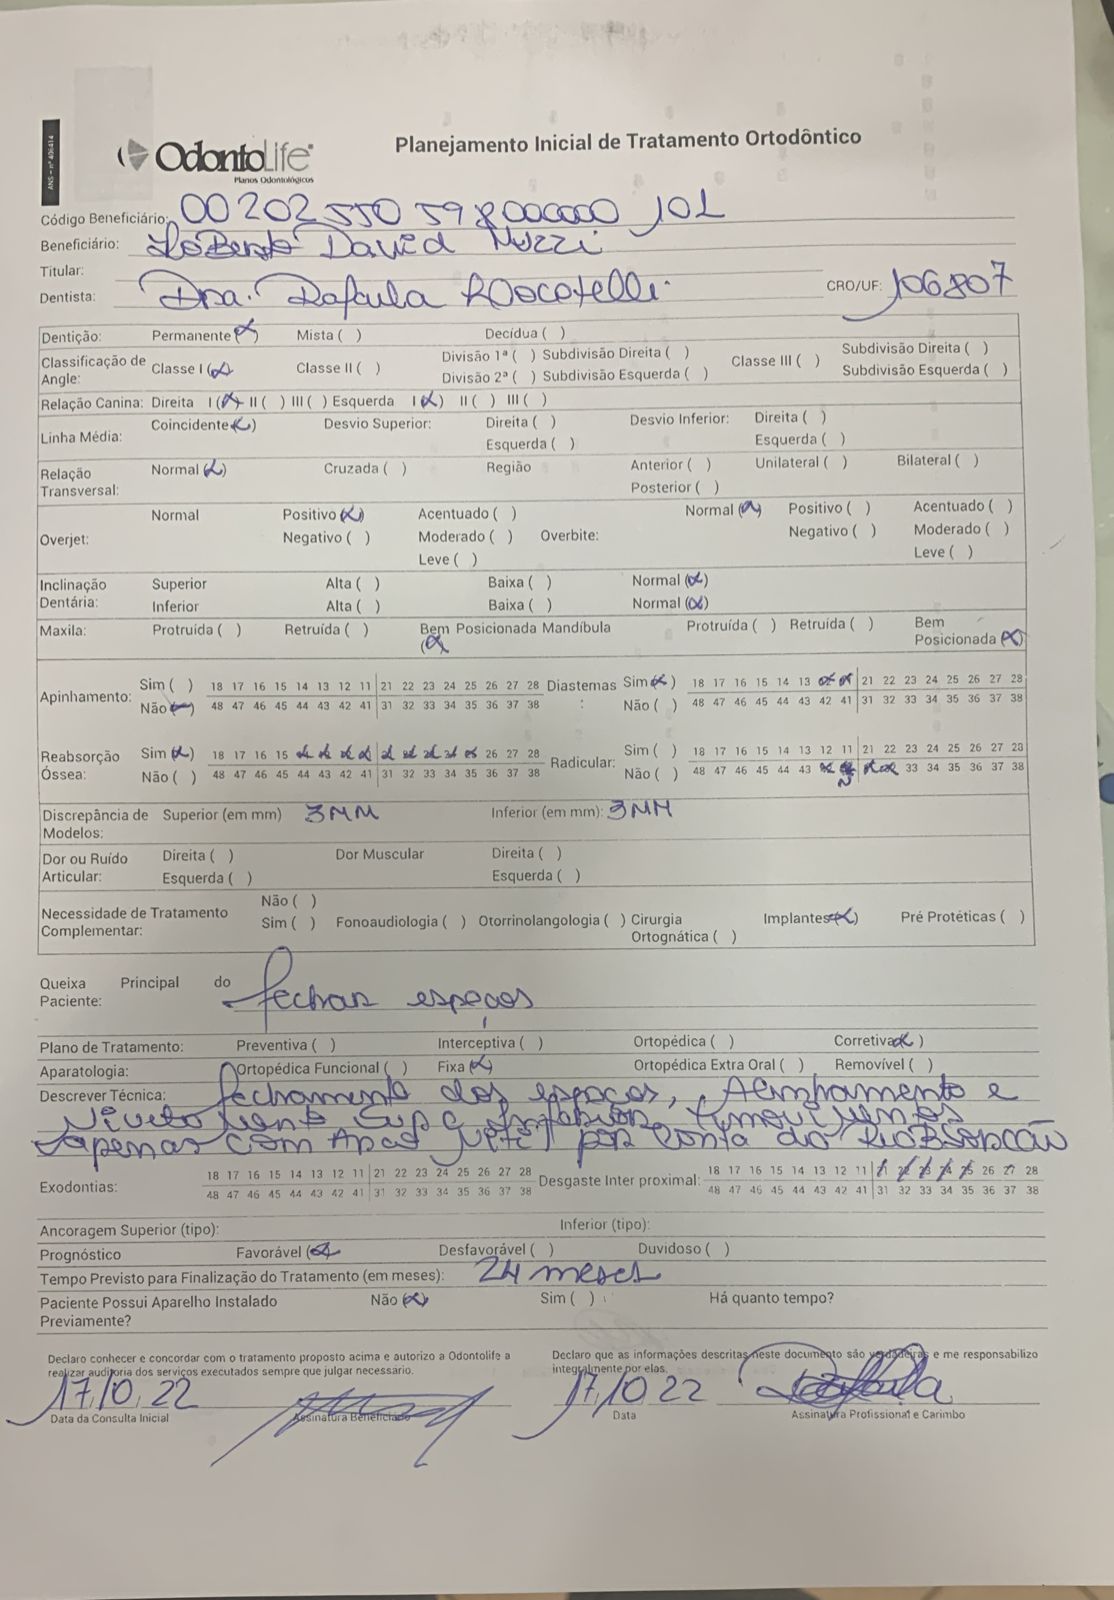 ANS - nº 406414
OdontoLife
Planos Odontológicos
Planejamento Inicial de Tratamento Ortodôntico
Código Beneficiário: 00202550598000000 101
Beneficiário: David
Titular:
Dentista: Dra. Rafaela CRO/UF: 106807
Dentição: Permanente (x) Mista ( ) Decídua ( )
Classificação de Angle: Classe I (x) Classe II ( ) Divisão 1ª ( ) Subdivisão Direita ( ) Classe III ( ) Subdivisão Direita ( )
Divisão 2ª ( ) Subdivisão Esquerda ( ) Subdivisão Esquerda ( )
Relação Canina: Direita I (x) II ( ) III ( ) Esquerda I (x) II ( ) III ( )
Linha Média: Coincidente (x) Desvio Superior: Direita ( ) Desvio Inferior: Direita ( )
Esquerda ( ) Esquerda ( )
Relação Transversal: Normal (x) Cruzada ( ) Região Anterior ( ) Unilateral ( ) Bilateral ( )
Posterior ( )
Overjet: Normal Positivo (x) Acentuado ( ) Overbite: Normal (x) Positivo ( ) Acentuado ( )
Negativo ( ) Moderado ( ) Negativo ( ) Moderado ( )
Leve ( ) Leve ( )
Inclinação Dentária: Superior Alta ( ) Baixa ( ) Normal (x)
Inferior Alta ( ) Baixa ( ) Normal (x)
Maxila: Protruída ( ) Retruída ( ) Bem Posicionada (x) Mandíbula Protruída ( ) Retruída ( ) Bem Posicionada (x)
Apinhamento: Sim ( ) 18 17 16 15 14 13 12 11 21 22 23 24 25 26 27 28 Diastemas: Sim (x) 18 17 16 15 14 13 21 22 23 24 25 26 27 28
Não (x) 48 47 46 45 44 43 42 41 31 32 33 34 35 36 37 38 Não ( ) 48 47 46 45 44 43 42 41 31 32 33 34 35 36 37 38
Reabsorção Óssea: Sim (x) 18 17 16 15 26 27 28 Radicular: Sim ( ) 18 17 16 15 14 13 12 11 21 22 23 24 25 26 27 28
Não ( ) 48 47 46 45 44 43 42 41 31 32 33 34 35 36 37 38 Não ( ) 48 47 46 45 44 43 33 34 35 36 37 38
Discrepância de Modelos: Superior (em mm) 3MM Inferior (em mm): 3MM
Dor ou Ruído Articular: Direita ( ) Dor Muscular Direita ( )
Esquerda ( ) Esquerda ( )
Necessidade de Tratamento Complementar: Não ( )
Sim ( ) Fonoaudiologia ( ) Otorrinolangologia ( ) Cirurgia Ortognática ( ) Implantes (x) Pré Protéticas ( )
Queixa Principal do Paciente: fechar espaços
Plano de Tratamento: Preventiva ( ) Interceptiva ( ) Ortopédica ( ) Corretiva (x)
Aparatologia: Ortopédica Funcional ( ) Fixa (x) Ortopédica Extra Oral ( ) Removível ( )
Descrever Técnica: fechamento dos espaços, Alinhamento e
Nivelamento Sup e
apenas com por conta da Reabsorção
Exodontias: 18 17 16 15 14 13 12 11 21 22 23 24 25 26 27 28 Desgaste Inter proximal: 18 17 16 15 14 13 12 11 21 22 23 24 25 26 27 28
48 47 46 45 44 43 42 41 31 32 33 34 35 36 37 38 48 47 46 45 44 43 42 41 31 32 33 34 35 36 37 38
Ancoragem Superior (tipo): Inferior (tipo):
Prognóstico Favorável (x) Desfavorável ( ) Duvidoso ( )
Tempo Previsto para Finalização do Tratamento (em meses): 24 meses
Paciente Possui Aparelho Instalado Previamente? Não (x) Sim ( ) Há quanto tempo?
Declaro conhecer e concordar com o tratamento proposto acima e autorizo a Odontolife a
realizar auditoria dos serviços executados sempre que julgar necessário.
Declaro que as informações descritas neste documento são verdadeiras e me responsabilizo
integralmente por elas.
17/10/22
Data da Consulta Inicial
Assinatura Beneficiário
17/10 22
Data
Assinatura Profissional e Carimbo